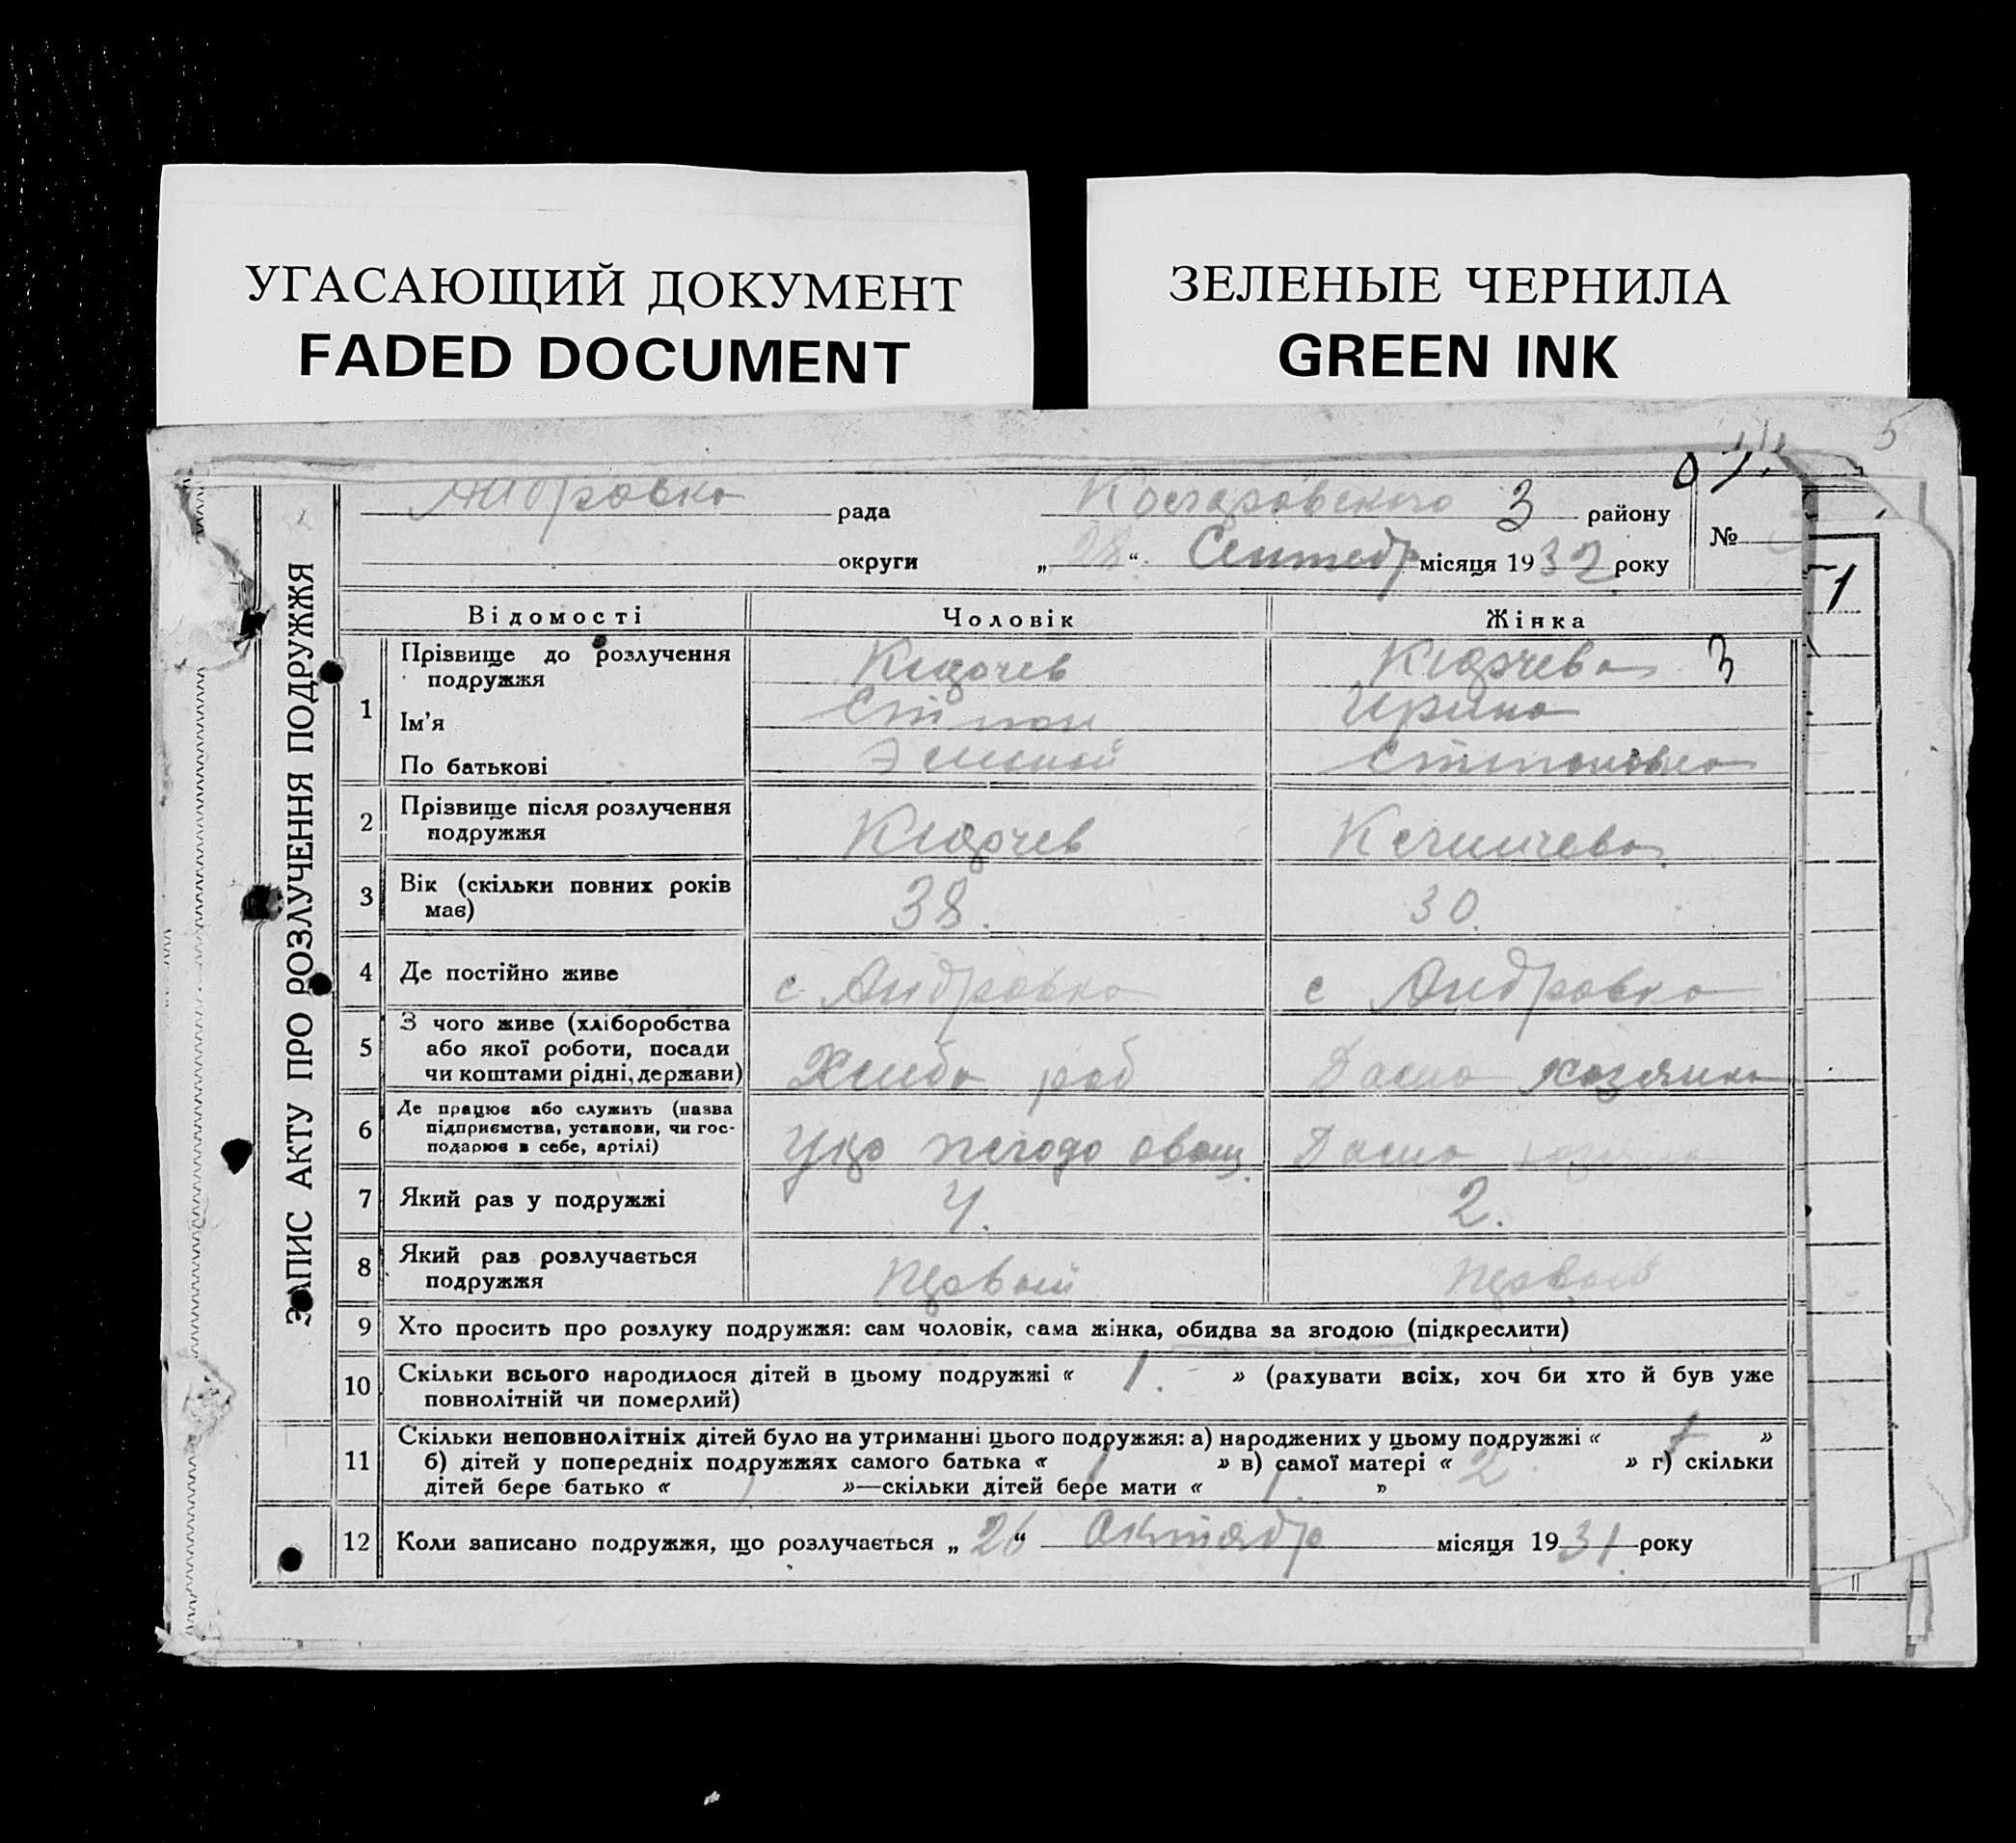 УГАСАЮЩИЙ ДОКУМЕНТ
FADED DOCUMENT
ЗЕЛЕНЫЕ ЧЕРНИЛА
GREEN INK
5
ЗАПИС АКТУ ПРО РОЗЛУЧЕННЯ ПОДРУЖЖЯ
Андровка рада 3 району
округи „28“ Сентебр місяця 1932 року
№
1
Відомості Чоловік Жінка
1 Прізвище до розлучення подружжя 3
Ім'я Ирина
По батькові
2 Прізвище після розлучення подружжя
3 Вік (скільки повних років має) 38. 30.
4 Де постійно живе с Андровка с Андровка
5 З чого живе (хліборобства або якої роботи, посади чи коштами рідні, держави) Хлибо роб Дамо хозяика
6 Де працює або служить (назва підприємства, установи, чи господарює в себе, артілі) Дамо
7 Який раз у подружжі 4. 2.
8 Який раз розлучається подружжя первый первый
9 Хто просить про розлуку подружжя: сам чоловік, сама жінка, обидва за згодою (підкреслити)
10 Скільки всього народилося дітей в цьому подружжі « 1. » (рахувати всіх, хоч би хто й був уже
повнолітній чи померлий)
11 Скільки неповнолітніх дітей було на утриманні цього подружжя: а) народжених у цьому подружжі « 1 »
б) дітей у попередніх подружжях самого батька « 1 » в) самої матері « 2 » г) скільки
дітей бере батько « 1 »—скільки дітей бере мати « 1. »
12 Коли записано подружжя, що розлучається „26“ Октябр місяця 1931. року